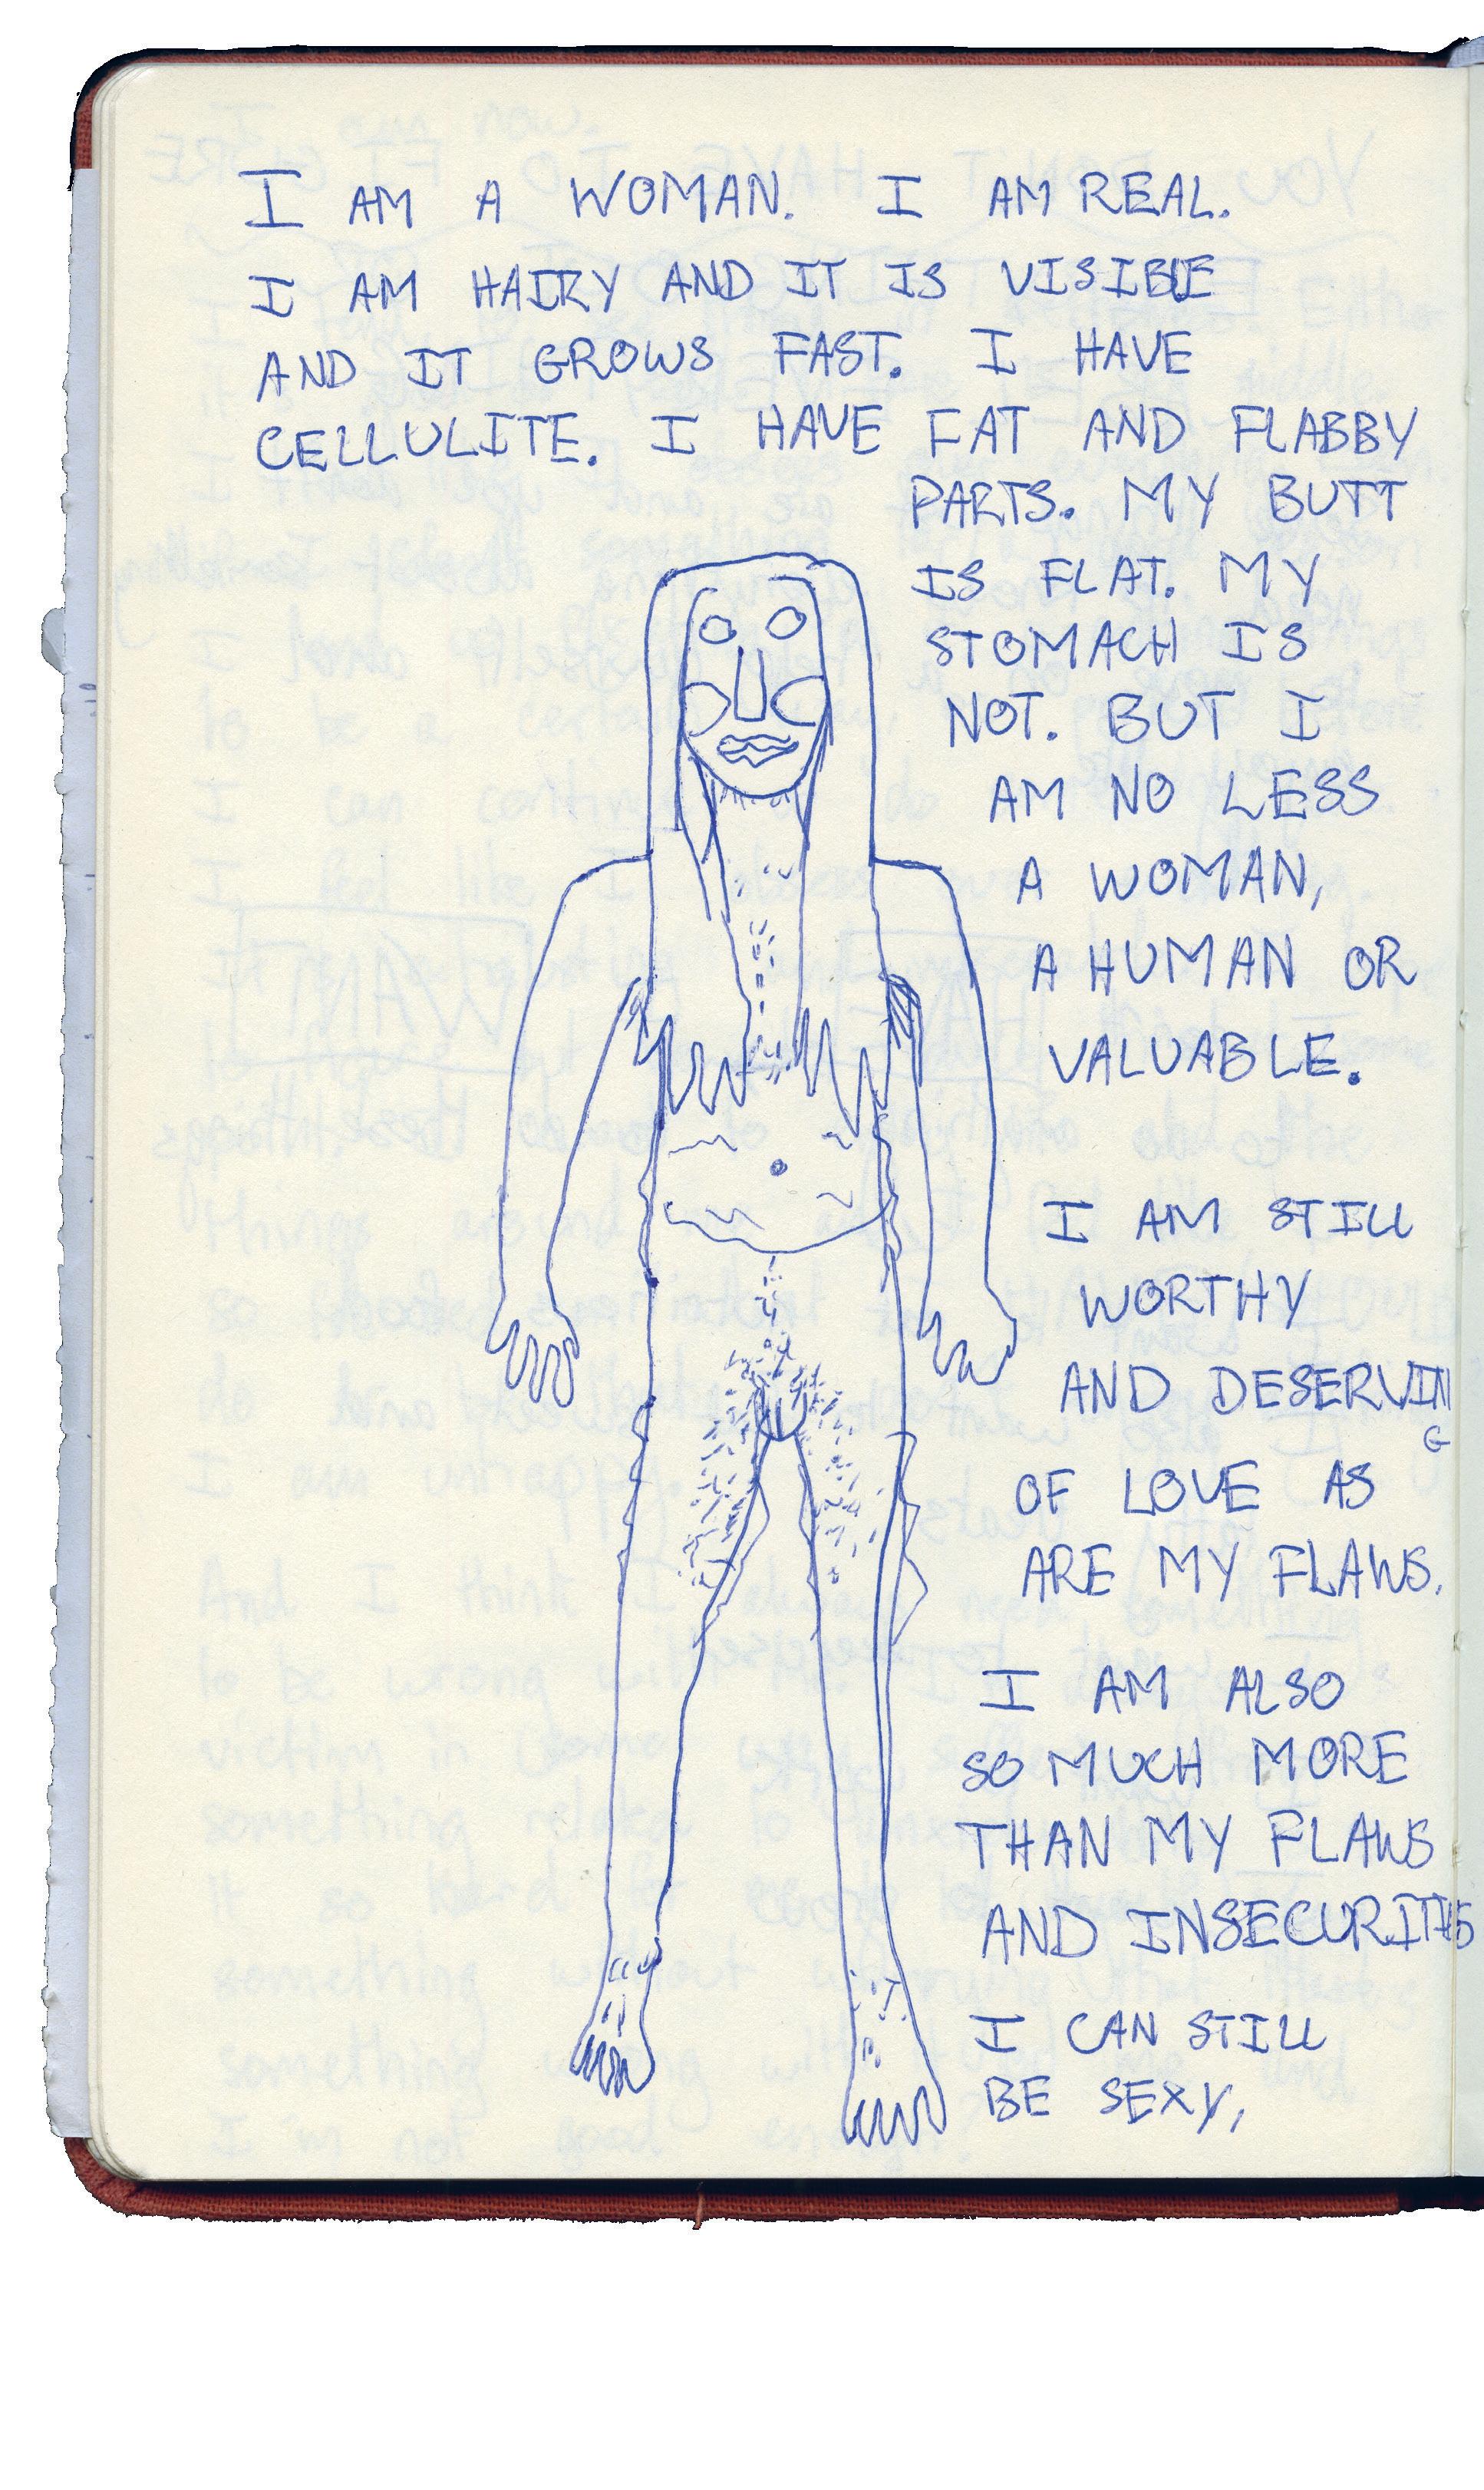 I AM A WOMAN. I AM REAL.
I AM HAIRY AND IT IS VISIBLE
AND IT GROWS FAST. I HAVE
CELLULITE. I HAVE FAT AND FLABBY
PARTS. MY BUTT
IS FLAT. MY
STOMACH IS
NOT. BUT I
AM NO LESS
A WOMAN,
A HUMAN OR
VALUABLE.
I AM STILL
WORTHY
AND DESERVIN
G
OF LOVE AS
ARE MY FLAWS.
I AM ALSO
SO MUCH MORE
THAN MY FLAWS
AND INSECURITIES
I CAN STILL
BE SEXY,